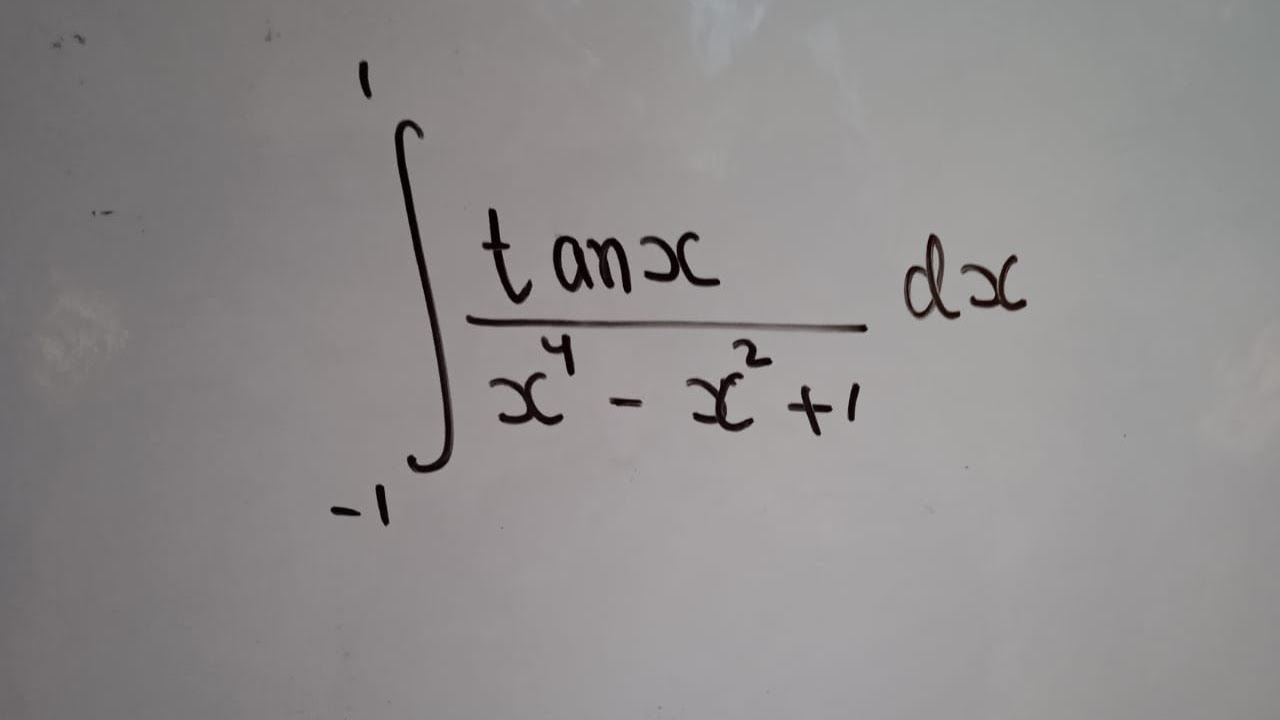 ∫_{-1}^{1} \frac{tan x}{x^4 - x^2 + 1} dx